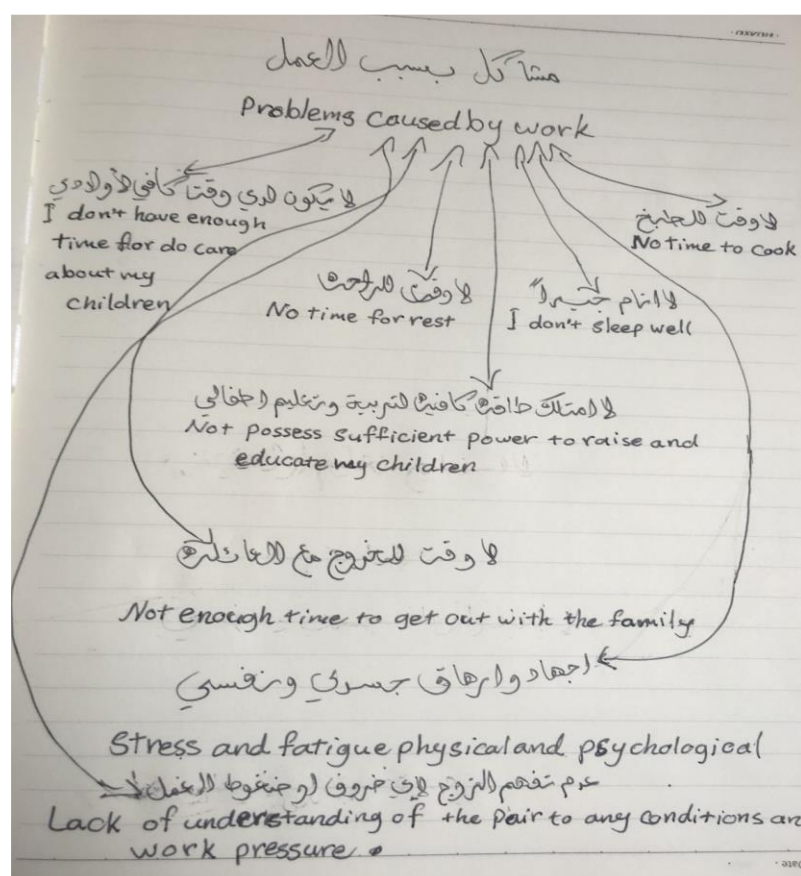 مشاكل بسبب العمل
Problems caused by work
لا يكون لدي وقتا كافي لأولادي
I don't have enough
time for do care
about my
children
لا وقت للطبخ
No time to cook
لا وقت للراحة
No time for rest
لا انام جيداً
I don't sleep well
لا امتلك طاقة كافية لتربية وتعليم اطفالي
Not possess sufficient power to raise and
educate my children
لا وقت للخروج مع العائلة
Not enough time to get out with the family
اجهاد وارهاق جسدي ونفسي
Stress and fatigue physical and psychological
عدم تفهم الزوج لاي ظروف او ضغوط العمل
Lack of understanding of the pair to any conditions an
work pressure.